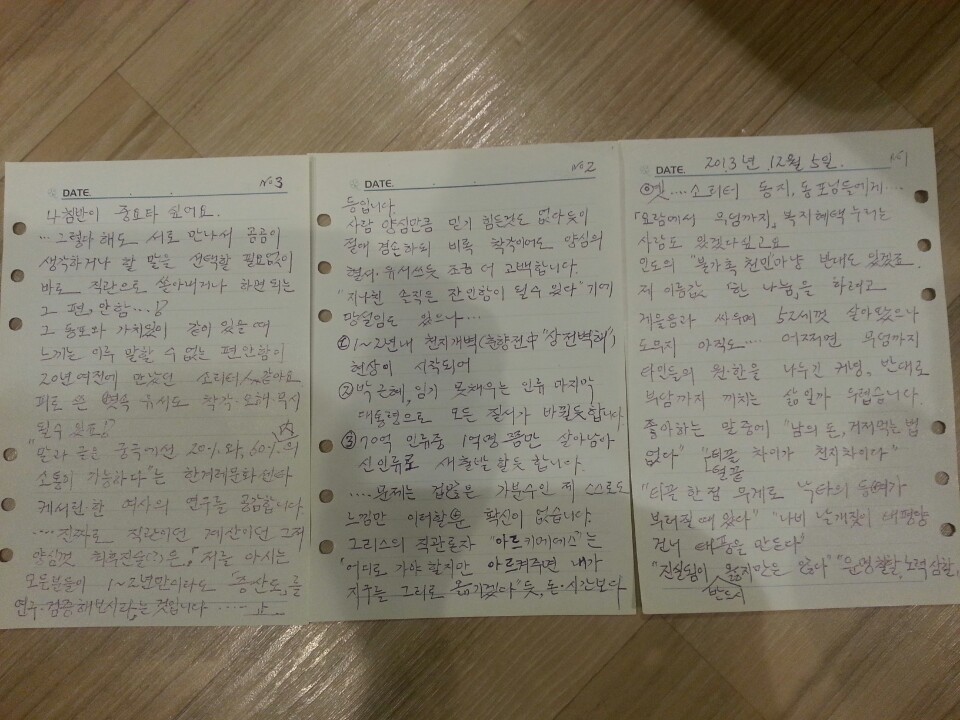 2013년 12월 5일. №1
옛....소리터 동지, 동포님들에게....
「요람에서 무덤까지」 복지혜택 누리는
사람도 있겠다 싶고요
인도의 "불가촉 천민"마냥 반대도 있겠죠.
제 이름값 「한 나눔」을 하려고
게으름과 싸우며 52세껏 살아왔으나
도무지 아직도.... 어쩌면 무덤까지
타인들의 원한을 나누긴 커녕, 반대로
부담까지 끼치는 삶일까 두렵습니다.
좋아하는 말중에 "남의 돈, 거저먹는 법
없다" "티끌 차이가 천지차이다"
털끝
"티끌 한점 무게로 낙타의 등뼈가
부러질 때 있다" "나비 날개짓이 태평양
건너 태풍을 만든다"
"진실됨이 옳지만은 않아" "운명七할, 노력三할,
반드시
DATE. №2
등입니다.
사람 양심만큼 믿기 힘든것도 없다듯이
절애 겸손하되 비록 착각이어도 양심의
혈서·유서쓰듯 조금 더 고백합니다.
"지나친 솔직은 잔인함이 될수 있다" 기에
망설임도 있으나...
① 1~2년내 천지개벽(춘향전中 "상전벽해")
현상이 시작되어
② 박근혜, 임기 못채우는 인류 마지막
대통령으로 모든 질서가 바뀔듯합니다.
③ 70억 인류중 1억명 쯤만 살아남아
신인류로 새출발 할듯 합니다.
....문제는 겁많은 가분수인 제 스스로도
느낌만 이러할 뿐 확신이 없습니다.
그리스의 직관론자 "아르키메데스"는
"어디로 가야 할지만 아르켜주면 내가
지구를 그리로 옮기겠다"듯, 돈·시간보다
DATE. №3
나침반이 중요타 싶어요.
...그렇다 해도 서로 만나서 곰곰이
생각하거나 할 말을 선택할 필요없이
바로 직관으로 쏟아버거나 하면 되는
그 편,안함...!?
그 동포와 가치있이 같이 있을때
느끼는 이루 말할 수 없는 편안함이
20년여전에 만났던 소리터人 같아요
피로 쓴 옛 유서도 착각·오해·무시
될수 있죠!?
"말과 글은 중국에선 20%와, 60%의
內
소통이 가능하다"는 한겨레문화센타
케서린·한 여사의 연우를 공감합니다.
....진짜로 직관이던 계산이던 그저
양심껏 최후진술(?)은, 「저를 아시는
모든분들이 1~2년만이라도 '증산도'를
연구·검증해 보시라」는 것입니다 .....